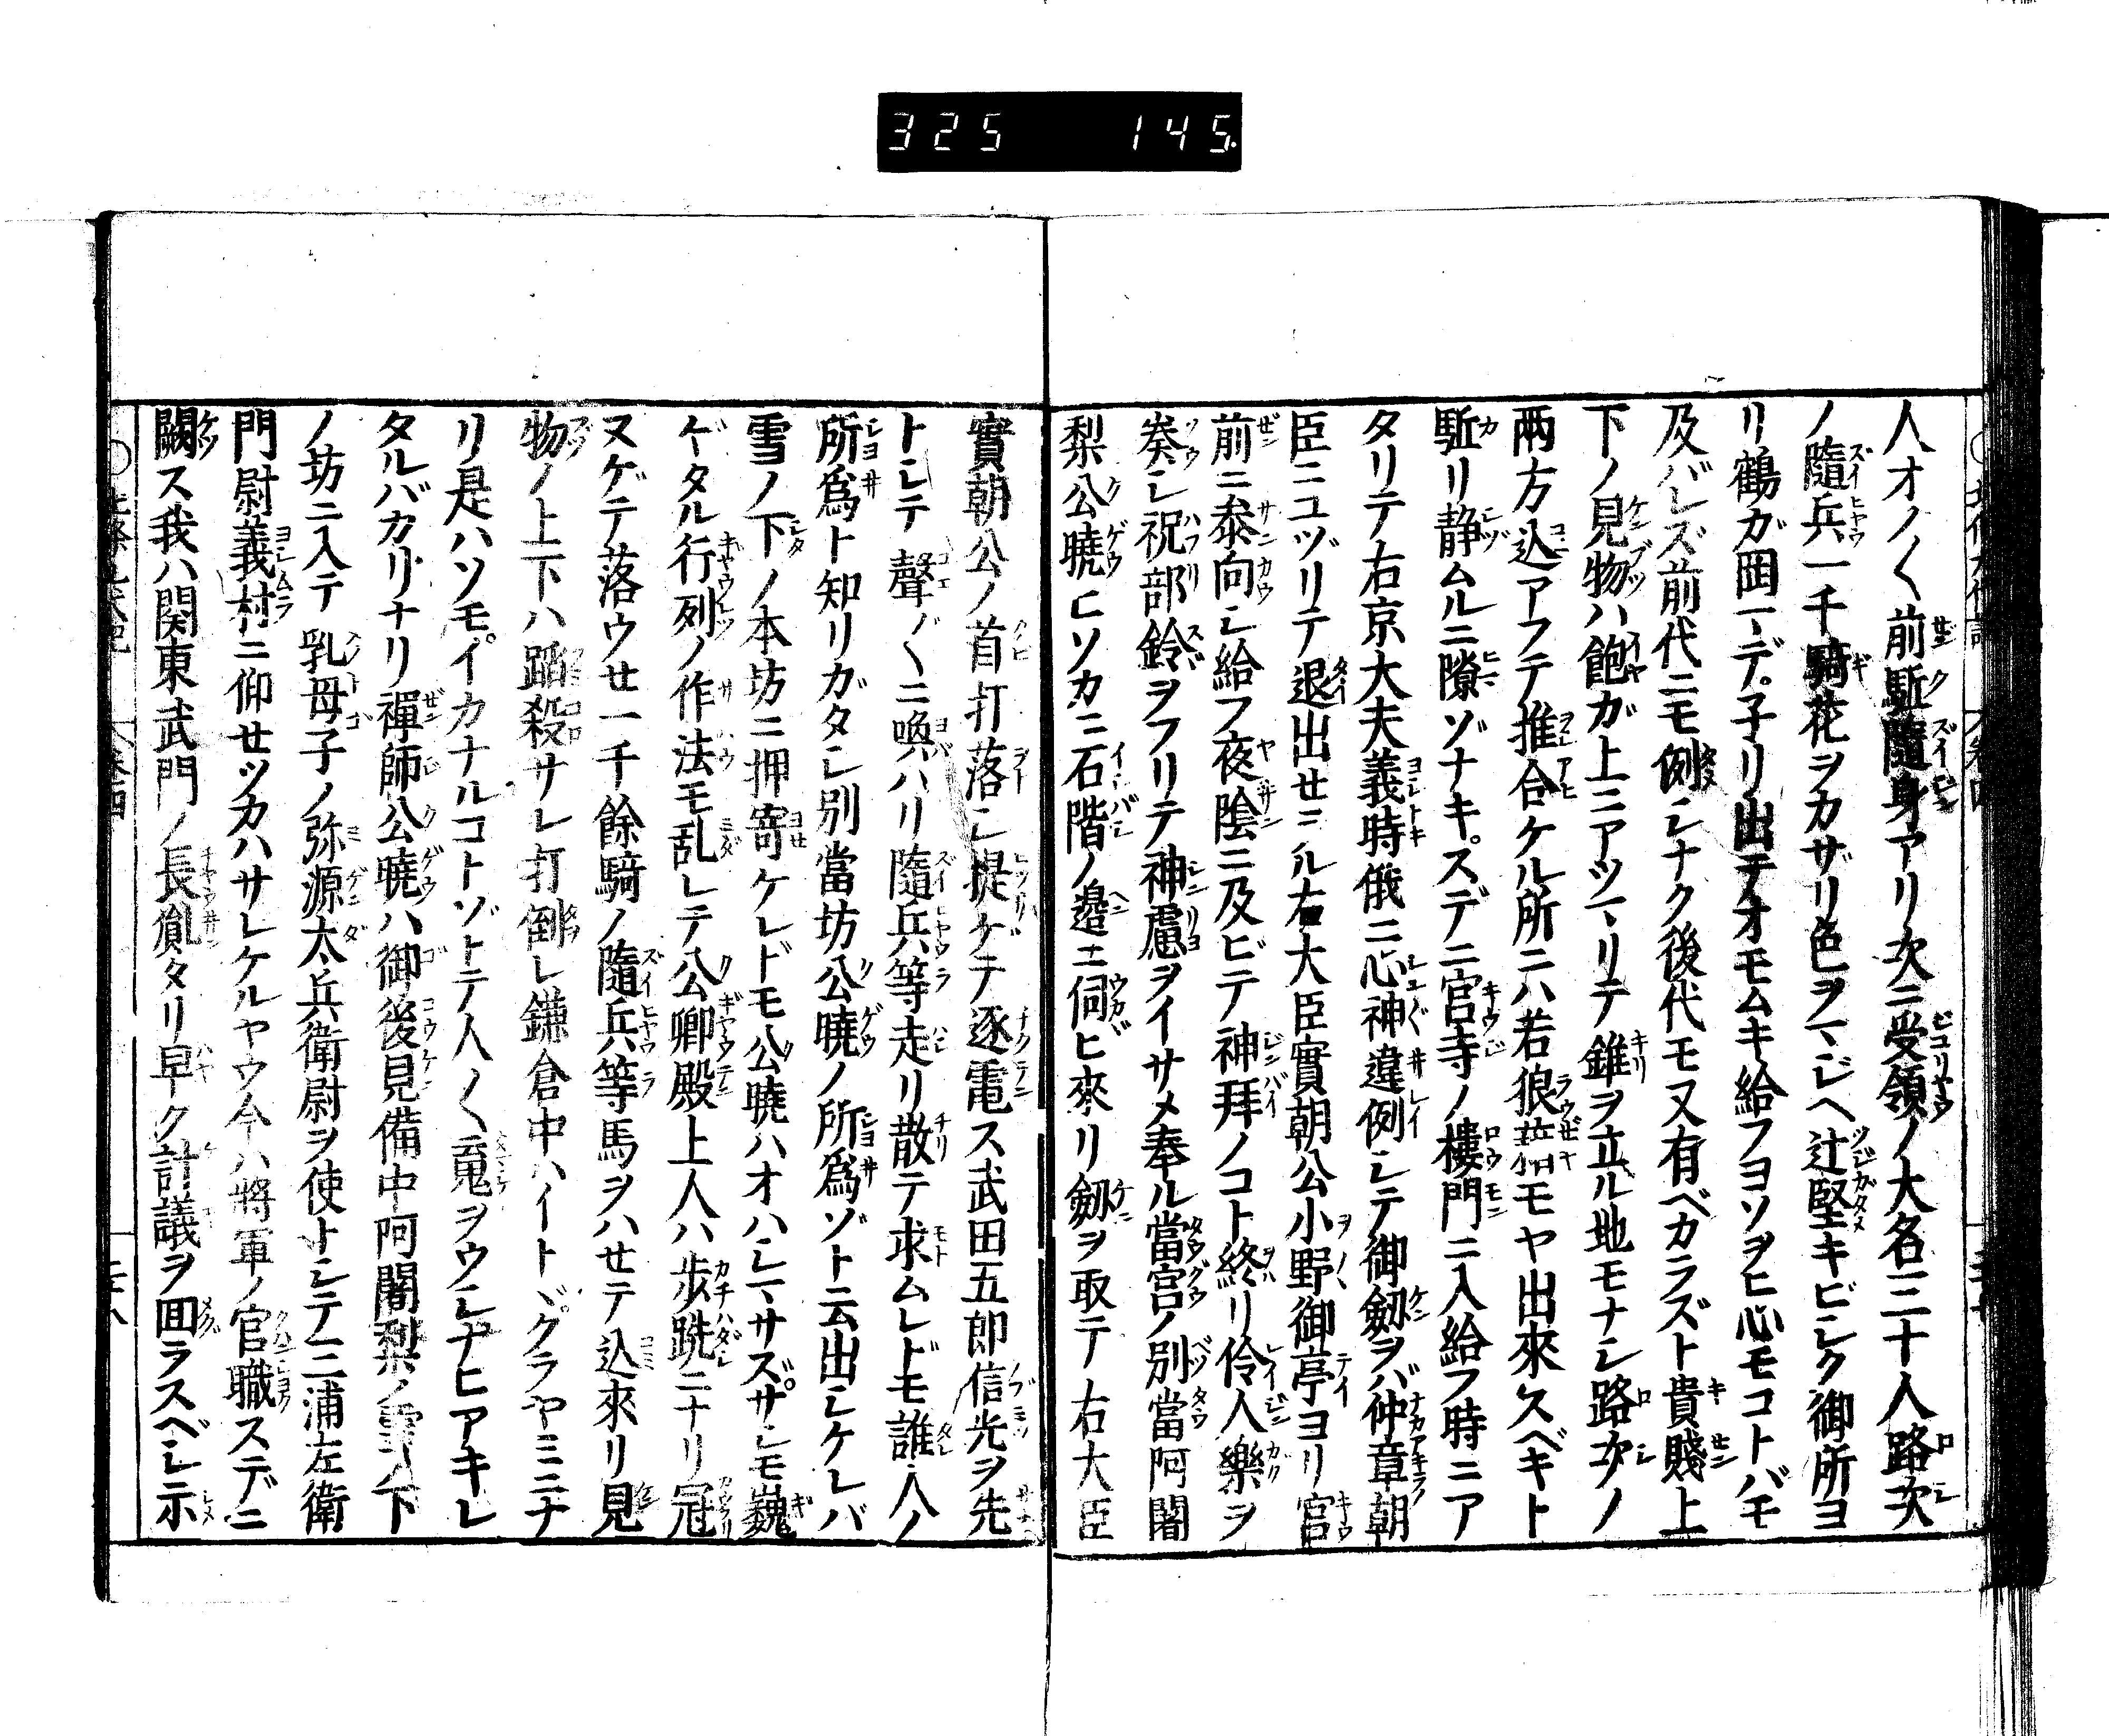 325 145.
人オノ〱前駈隨身アリ次ニ受領ノ大名三十人路次
ノ隨兵一千騎花ヲカザリ色ヲマジヘ辻堅キビシク御所ヨ
リ鶴ガ岡マデ子リ出テオモムキ給フヨソヲヒ心モコトバモ
及バレズ前代ニモ例シナク後代モ又有ベカラズト貴賤上
下ノ見物ハ飽ガ上ニアツマリテ錐ヲ立ル地モナシ路次ノ
兩方込アフテ推合ケル所ニハ若狼藉モヤ出來スベキト
駈リ静ムルニ隙ゾナキスデニ宮寺ノ樓門ニ入給フ時ニア
タリテ右京大夫義時俄ニ心神違例シテ御劔ヲバ仲章朝
臣ニユヅリテ退出セラル右大臣實朝公小野御亭ヨリ宮
前ニ泰向シ給フ夜陰ニ及ビテ神拜ノコト終リ伶人樂ヲ
奏シ祝部鈴ヲフリテ神慮ヲイサメ奉ル當宮ノ別當阿闍
梨公曉ヒソカニ石階ノ邉ニ伺ヒ來リ劔ヲ取テ右大臣
實朝公ノ首打落シ提ゲテ逐電ス武田五郎信光ヲ先
トシテ聲〲ニ喚ハリ隨兵等走リ散テ求ムレドモ誰人ノ
所爲ト知リガタシ別當坊公曉ノ所爲ゾト云出シケレバ
雪ノ下ノ本坊ニ押寄ケレドモ公曉ハオハシマサズサシモ巍
ゲタル行列ノ作法モ乱レテ公卿殿上人ハ歩跣ニナリ冠
ヌゲテ落ウセ一千餘騎ノ隨兵等馬ヲハセテ込來リ見
物ノ上下ハ蹈殺サレ打倒レ鎌倉中ハイトヾグラヤミニナ
リ是ハソモイカナルコトゾトテ人〱䰟ヲウシナヒアキレ
タルバカリナリ禪師公曉ハ御後見備中阿闍梨ノ雪ノ下
ノ坊ニ入テ乳母子ノ弥源太兵衛尉ヲ使トシテ三浦左衛
門尉義村ニ仰セツカハサレケルヤウ今ハ將軍ノ官職スデニ
闕ス我ハ関東武門ノ長胤タリ早ク計議ヲ囬ラスベシ示